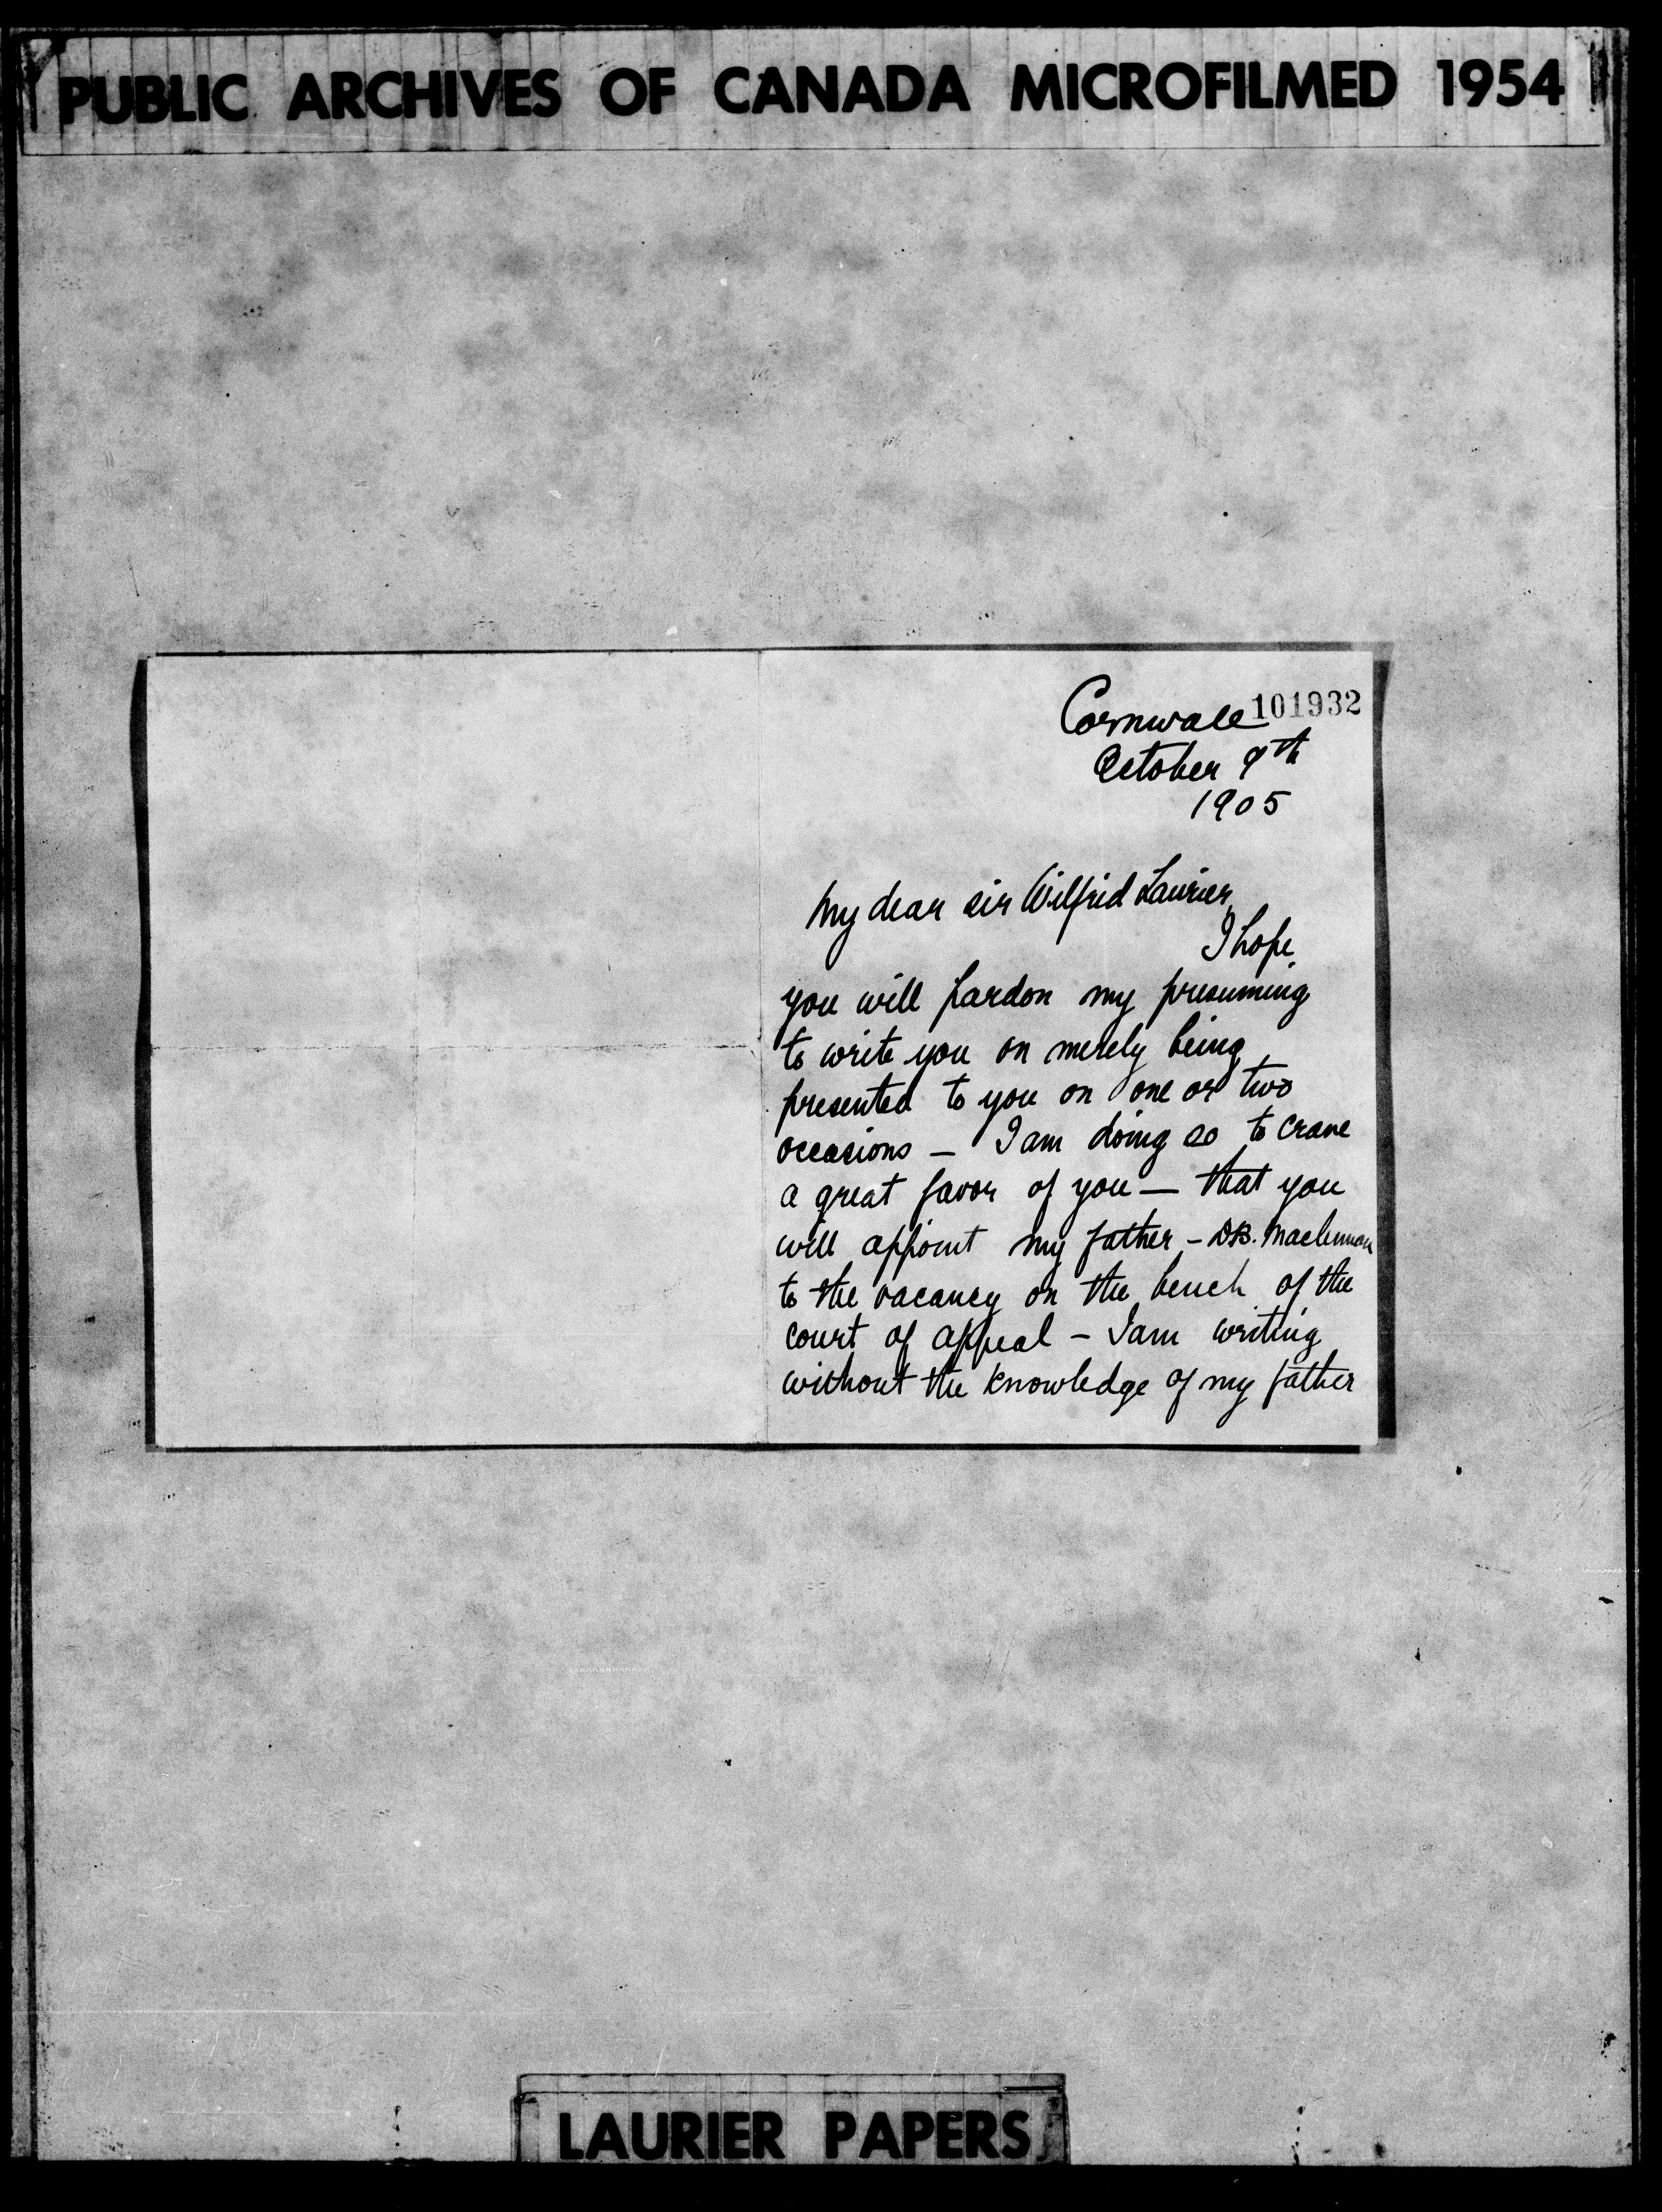 PUBLIC ARCHIVES OF CANADA MICROFILMED 1954
Cornwall 101932
October 9th
1905
My dear Sir Wilfrid Laurier,
I hope
you will pardon my presuming
to write you on merely being
presented to you on one or two
occasions – I am doing so to crave
a great favor of you — that you
will appoint my father – D.B. Maclennan
to the vacancy on the bench of the
court of appeal – I am writing
without the knowledge of my father
LAURIER PAPERS